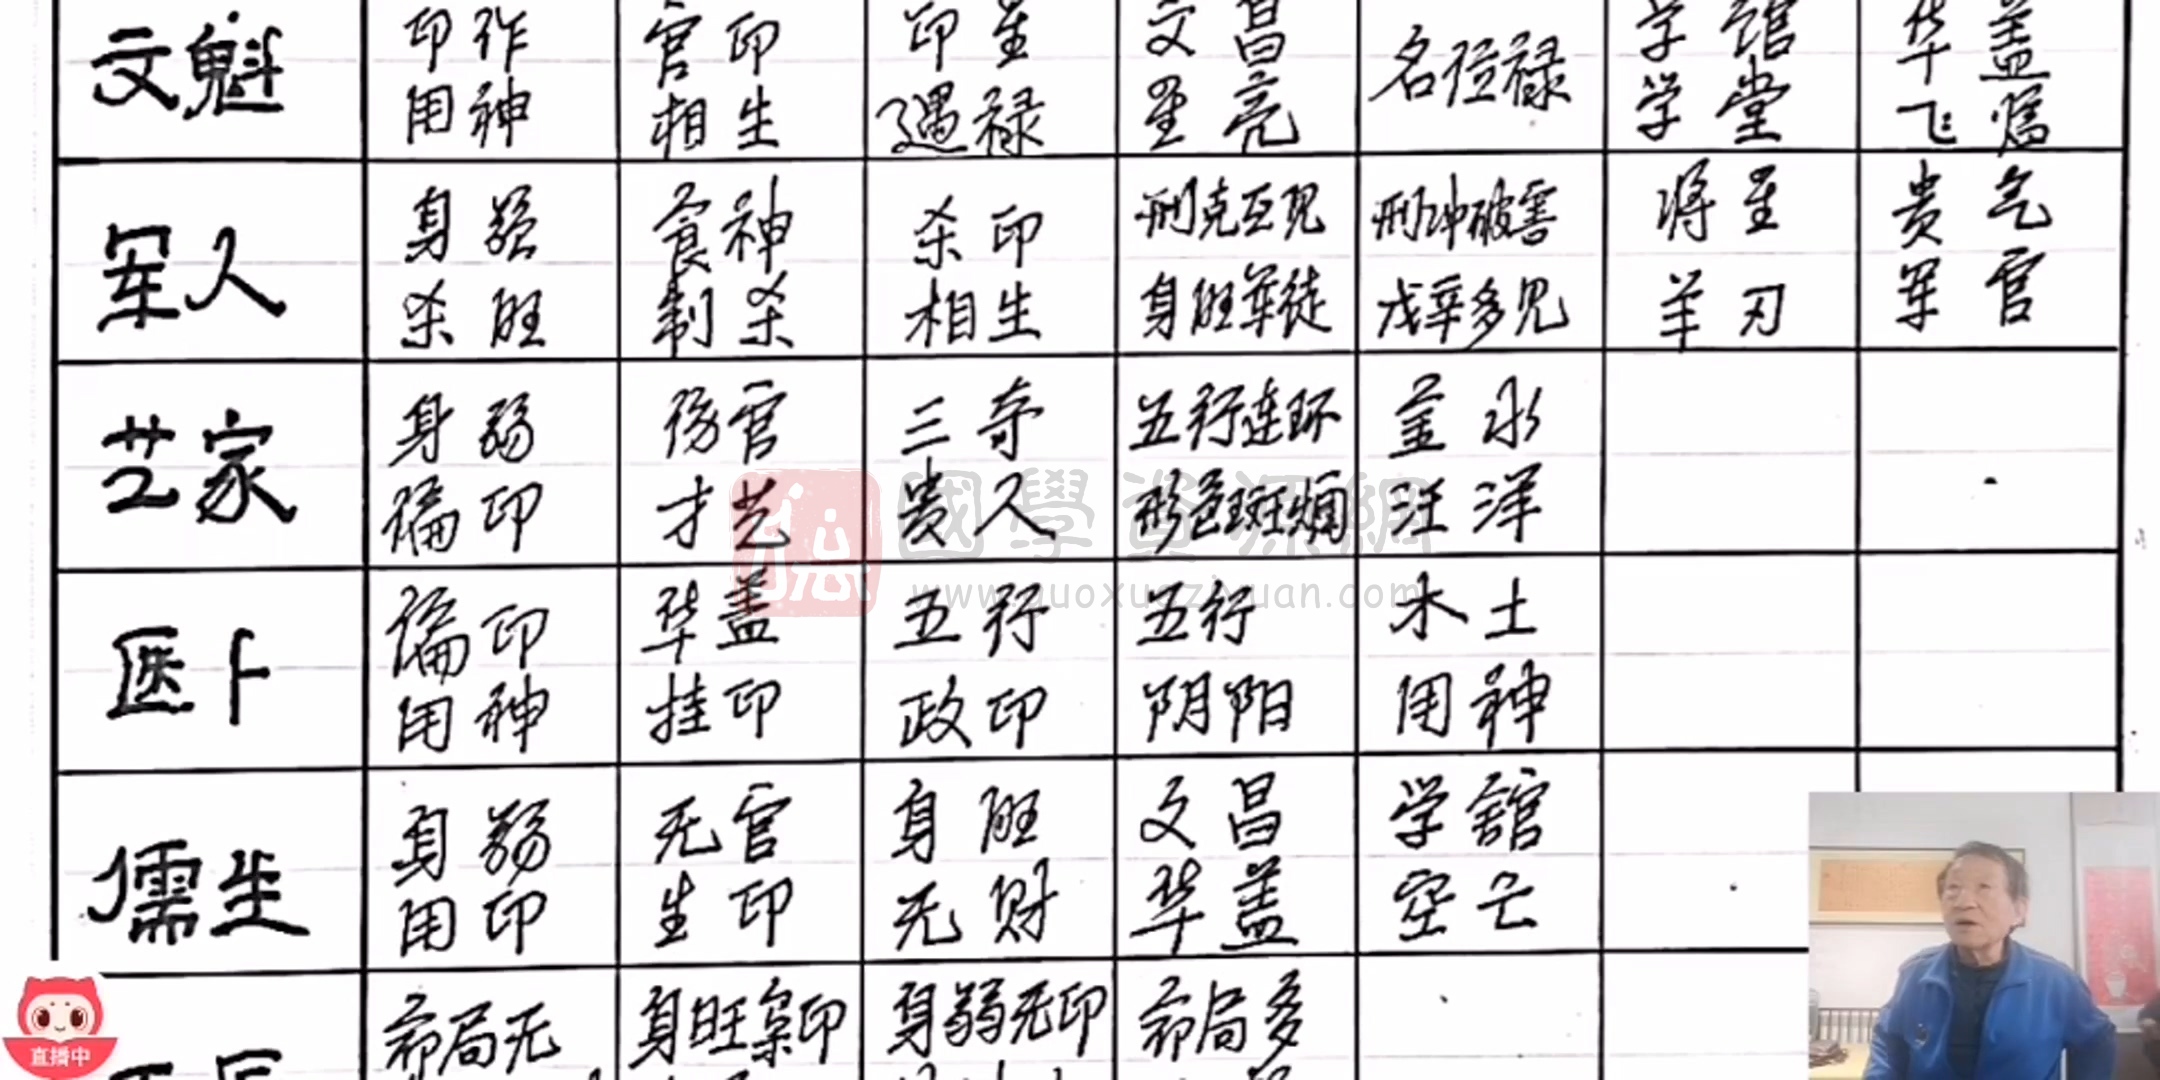 文魁 印作 官印 印星 文昌 名位禄 学馆 华盖
用神 相生 遇禄 星亮 学堂 飞熠
军人 身强 食神 杀印 刑克互见 刑冲破害 将星 贵气
杀旺 制杀 相生 身旺军徒 戊辛多见 羊刃 军官
艺家 身弱 伤官 三奇 五行连环 金水
偏印 才艺 贵人 形色斑斓 汪洋
國學資源網
www.guoxueziyuan.com
医卜 偏印 华盖 五行 五行 木土
用神 挂印 政印 阴阳 用神
儒生 身弱 无官 身旺 文昌 学館
用印 生印 无财 华盖 空亡
命局无 身旺枭印 身弱无印 命局多
直播中